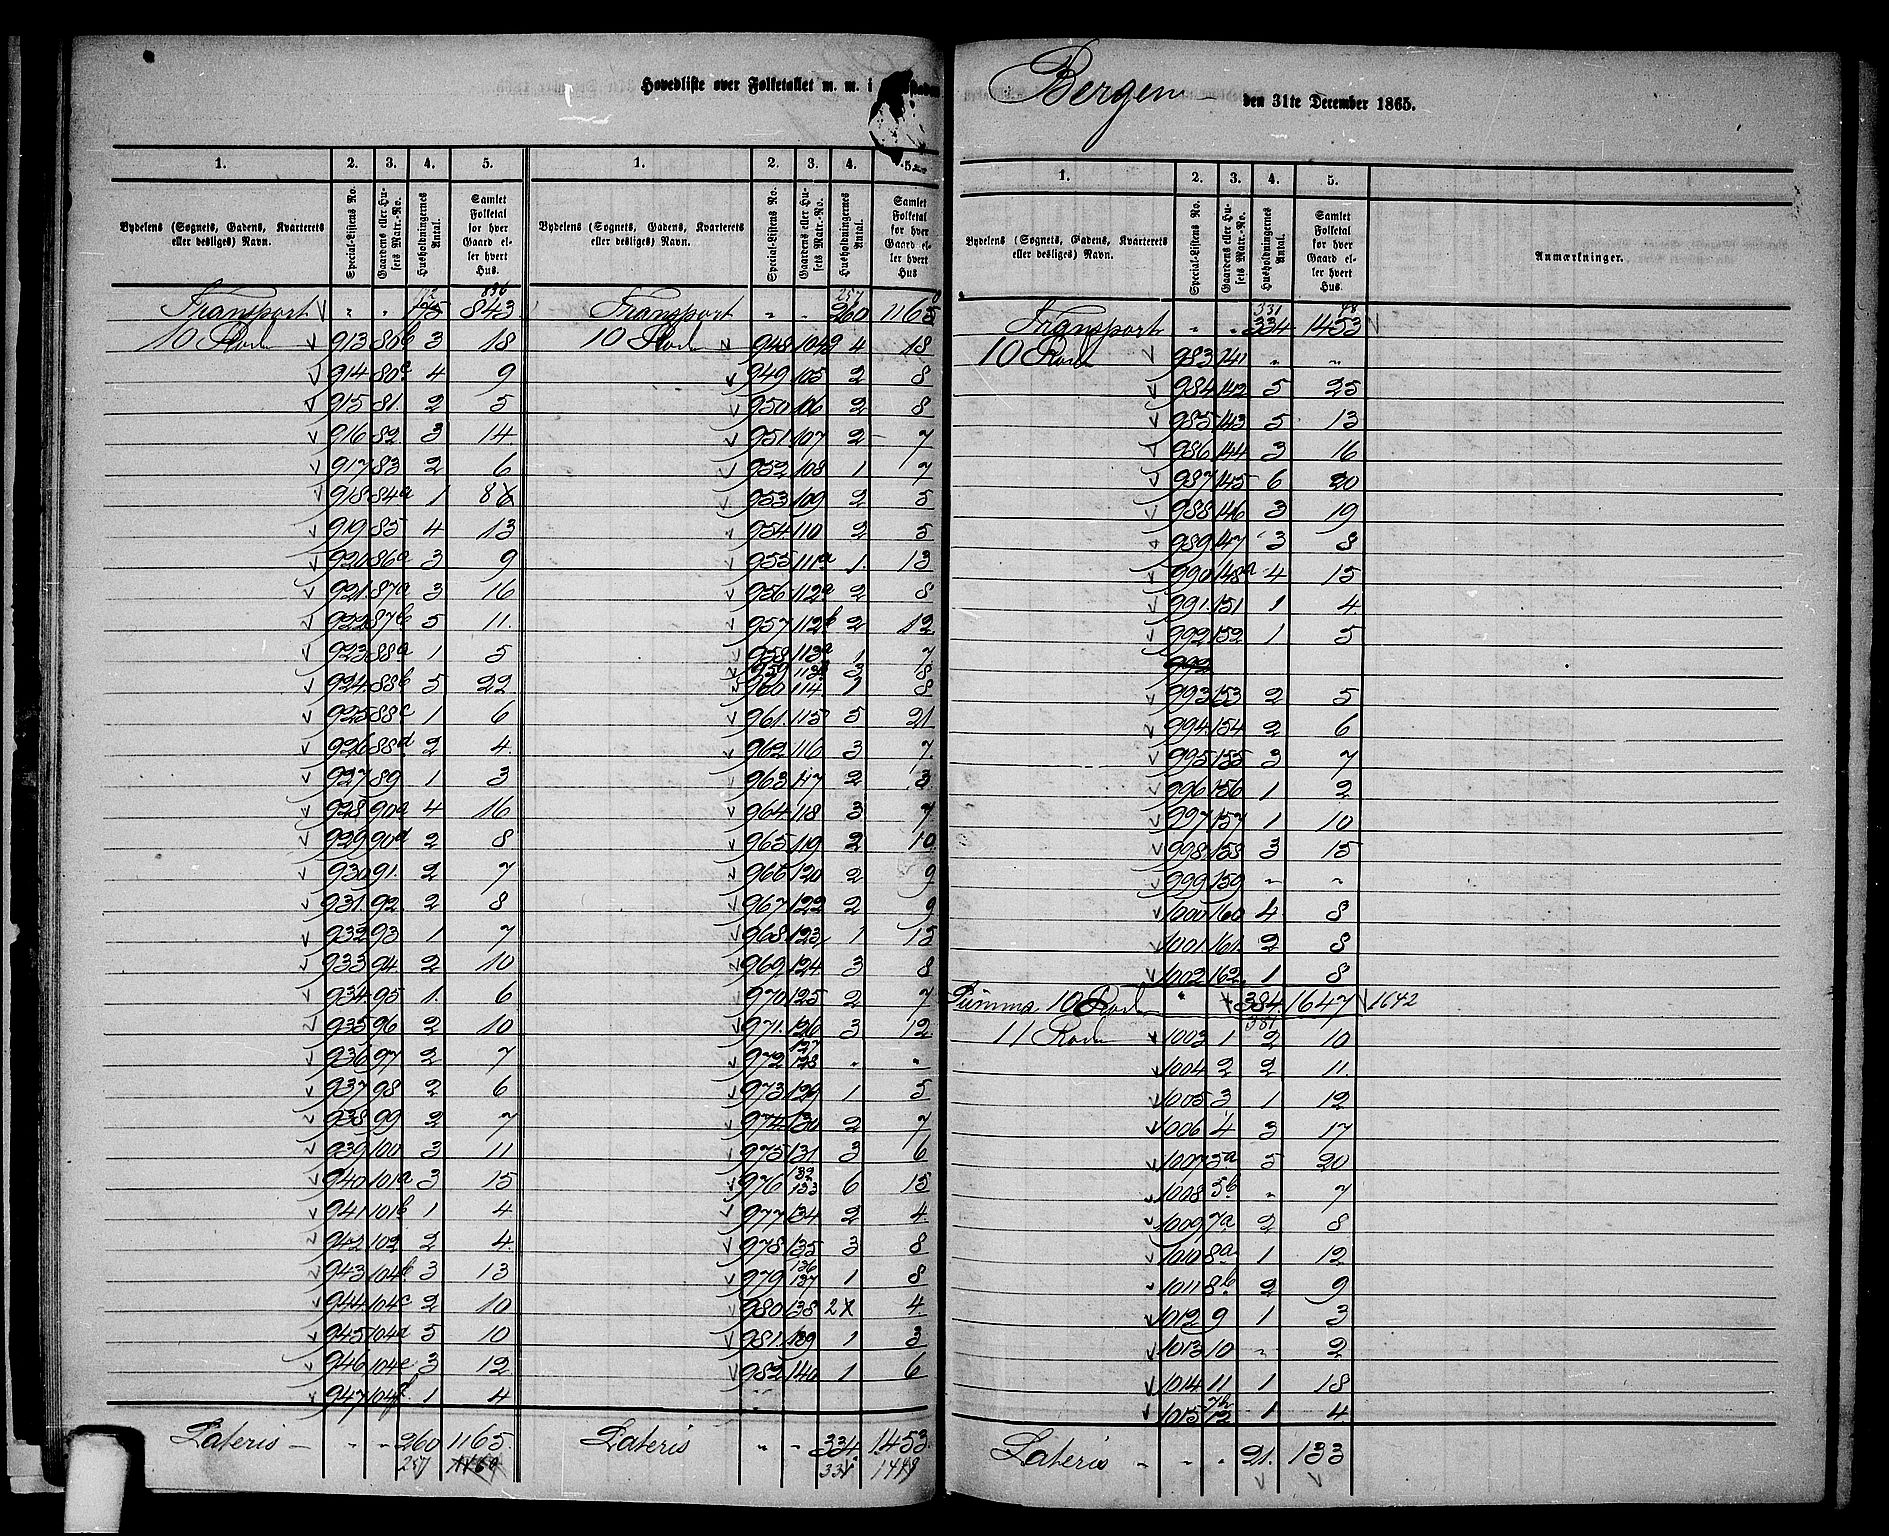 Hovedliste over Folketallet m. m. i
Bergen den 31te December 1865.
1. 2. 3. 4. 5. 1. 2. 3. 4. 5.
Bydelens (Sognets, Gadens, Kvarterets eller desliges) Navn. Special-Listens No. Gaardens eller Husets Matr.-No. Husholdningernes Antal. Samlet Folketal for hver Gaard eller hvert Hus.
Transport " " 843
10 Rode 913 80b 3 18
914 80c 4 9
915 81. 2 5
916 82 3 14
917 83 2 6
918 84a 1 8
919 85 4 13
920 86a 3 9
921. 87a 3 16
922 87b 5 11.
923 88a 1 5
924. 88b 5 22
925 88c 1 6
926 88d 2 4.
927 89 1 3
928 90a 4 16
929 90d 2 8
930 91. 2 7
931. 92. 2 8
932 93 1 7
933 94 2 10
934 95 1. 6
935 96 2 10
936 97 2 7
937 98 2 6
938 99 2 7
939 100 3 11
940 101a 3 15
941 101b 1 4
942 102 2 4.
943 104b 3 13
944 104c 2 10
945 104d 5 10
946 104e 3 12
947 104f. 1 4
Lateris " " 260 1165.
257
Bydelens (Sognets, Gadens, Kvarterets eller desliges) Navn. Special-Listens No. Gaardens eller Husets Matr.-No. Husholdningernes Antal. Samlet Folketal for hver Gaard eller hvert Hus
257
Transport " " 260 1165
10 Rode 948 104g 4 18
949 105 2 8
950 106 2 8
951 107 2 7
952 108 1 7
953 109 2 5
954 110 2 5
955 111a 1 13
956 112a 2 8
957 112b 2 12
958 113a 1 7
959 113b 3 8
960 114 1 8
961. 115 5 21
962 116 3 7.
963 117 2 3.
964 118 3 7
965 119 2 10.
966 120 2 9
967 122 2 9
968 123. 1 15
969 124 3 8
970 125 2 7
971. 126 3 12
972 127 128 " "
973 129 1 5
974 130 2 7
975 131 3 6
976 132 133 6 15
977 134 2 4.
978 135 3 8
979 136 137 1 8
980 138 2 4.
981. 139 1 3
982 140 1 6
Lateris " " 334 1453
331 1448
1. 2. 3. 4. 5.
Bydelens (Sognets, Gadens, Kvarterets eller desliges) Navn. Special-Listens No. Gaardens eller Husets Matr.-No. Husholdningernes Antal. Samlet Folketal for hver Gaard eller hvert Hus. Anmærkninger.
331 48
Transport " " 334 1453
10 Rode 983 141 " "
984 142 5 25
985 143 5 13
986 144 3 16
987 145 6 20
988 146 3 19
989 147 3 8
990 148a 4 15
991. 151 1 4.
992 152 1 5
992
993 153 2 5
994 154 2 6
995 155 3 7
996 156 1 2
997 157 1 10
998 158 3 15
999 159 " "
1000 160 4 8
1001 161 2 8
1002 162. 1 8
Summa 10 Rode " 384. 1647 1642
381
11 Rode 1003 1 2 10
1004 2 2 11.
1005 3 1 12
1006 4 3 17
1007 5a 5 20
1008 5b " 7
1009 7a 2 8
1010 8a 1 12
1011 8b 2 9
1012 9 1 3
1013 10 " 2
1014 11 1 18
1015 7b 12 1 4
Lateris " " " 21. 133